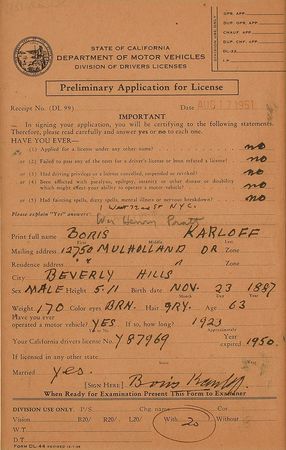 OPR. APP.
DUP. OPR. APP.
CHAUF. APP.
DUP. CHF. APP.
DL-33
I.P.
DIVISION USE ONLY
STATE OF CALIFORNIA
DEPARTMENT OF MOTOR VEHICLES
DIVISION OF DRIVERS LICENSES
Preliminary Application for License
Receipt No. (DL 99) Date AUG 17 1951
IMPORTANT
In signing your application, you will be certifying to the following statements.
Therefore, please read carefully and answer yes or no to each one.
HAVE YOU EVER—
(1) Applied for license under any other name? no
or (2) Failed to pass any of the tests for a driver's license or been refused a license? no
or (3) Had driving privilege or a license cancelled, suspended or revoked? no
or (4) Been affected with paralysis, epilepsy, insanity or other disease or disability
which might affect your ability to operate a motor vehicle? no
or (5) Had fainting spells, dizzy spells, mental illness or nervous breakdown? no
Please explain "Yes" answers: N.Y.C.
Wm Henry Pratt
Print full name BORIS KARLOFF
First Middle Last
Mailing address 12750 MULHOLLAND DR Zone
Residence address " " Zone
City BEVERLY HILLS
Sex MALE Height 5.11 Birth date NOV. 23 1887
Weight 170 Color eyes BRN. Hair GRY. Age 63
Have you ever
operated a motor vehicle? YES If so, how long? 1923
Yes or No Approximately
Your California drivers license No. Y87969 Year expired 1950.
If licensed in any other state
Married yes.
[SIGN HERE] Boris Karloff
When Ready for Examination Present This Form to Examiner
DIVISION USE ONLY P/S Chg. name Cor.
Vision B20/ R20/ L20/ With 20 Without
FORM DL-44